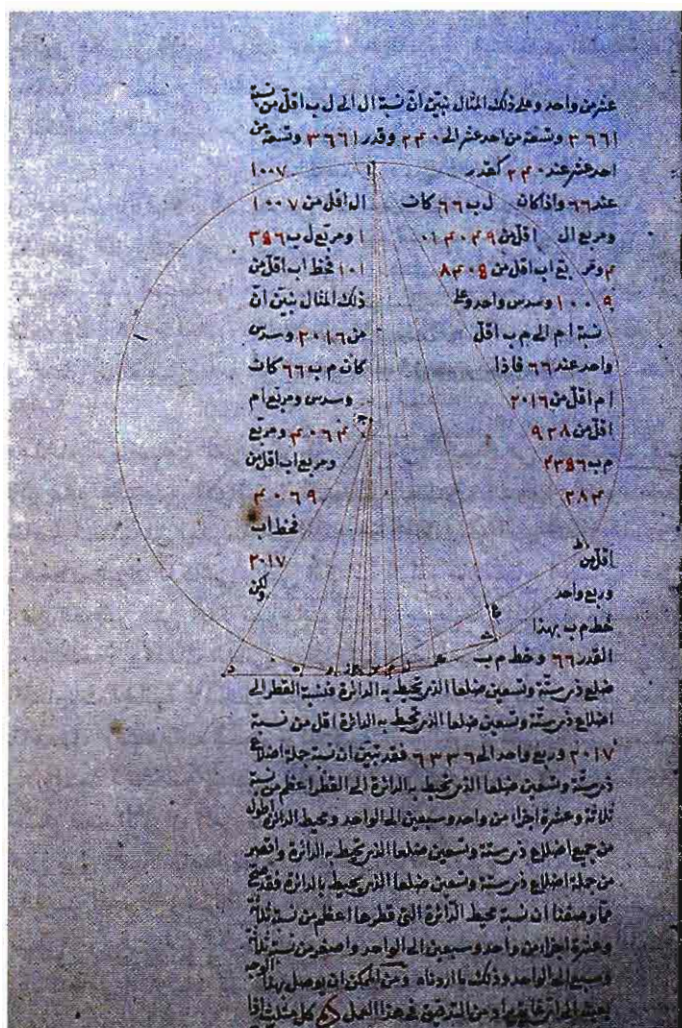 عشر من واحد وعلى ذلك المثال نبيّن انّ نسبة ال الى ل ب اقلّ من نسبة
٣٦٦١ وتسعة من احد عشر الى ٢٤٠ وقدر ٣٦٦١ وتسعة من
احد عشر عند ٢٤٠ كقدر ١٠٠٧
عند ٦٦ واذا كان ل ب ٦٦ كان ال اقل من ١٠٠٧
ومربع ال اقل من ١٠١٤٠٤٩ ومربّع ل ب ٤٣٥٦
ومربع اب اقل من ١٠١٨٤٠٥ فخط اب اقل من
١٠٠٩ وسدس واحد وعلى ذلك المثال نبيّن انّ
نسبة ام الى م ب اقلّ من ٢٠١٦ وسدس
واحد عند ٦٦ فاذا كان م ب ٦٦ كان
ام اقلّ من ٢٠١٦ وسدس ومربع ام
اقل من ٤٠٦٤٩٢٨ ومربع
م ب ٤٣٥٦ ومربع اب اقل من
٤٠٦٩٢٨٤
فخط اب
اقل من ٢٠١٧
وربع واحد ولكن
خط م ب بهذا
القدر ٦٦ وخط م ب
ضلع ذى ستّة وتسعين ضلعا الذى يحيط به الدائرة فنسبة القطر الى
اضلاع ذى ستّة وتسعين ضلعا الذى تحيط به الدائرة اقل من نسبة
٢٠١٧ وربع واحد الى ٦٣٣٦ فقد تبيّن ان نسبة جملة اضلاع
ذى ستّة وتسعين ضلعا الذى تحيط به الدائرة الى القطر اعظم من نسبة
ثلاثة وعشرة اجزاء من واحد وسبعين الى الواحد ومحيط الدائرة اطول
من جميع اضلاع ذى ستة وتسعين ضلعا الذى تحيط به الدائرة واقصر
من جملة اضلاع ذى ستة وتسعين ضلعا الذى يحيط بالدائرة فقد صحّ
ممّا وصفنا ان نسبة محيط الدّائرة الى قطرها اعظم من نسبة ثلاثة
وعشرة اجزاء من واحد وسبعين الى الواحد واصغر من نسبة ثلاثة
وسبع الى الواحد وذلك ما اردناه ومن الممكن ان يوصل بهذا الوجه
من التدقيق فى هذا العمل كل مثلث اذا